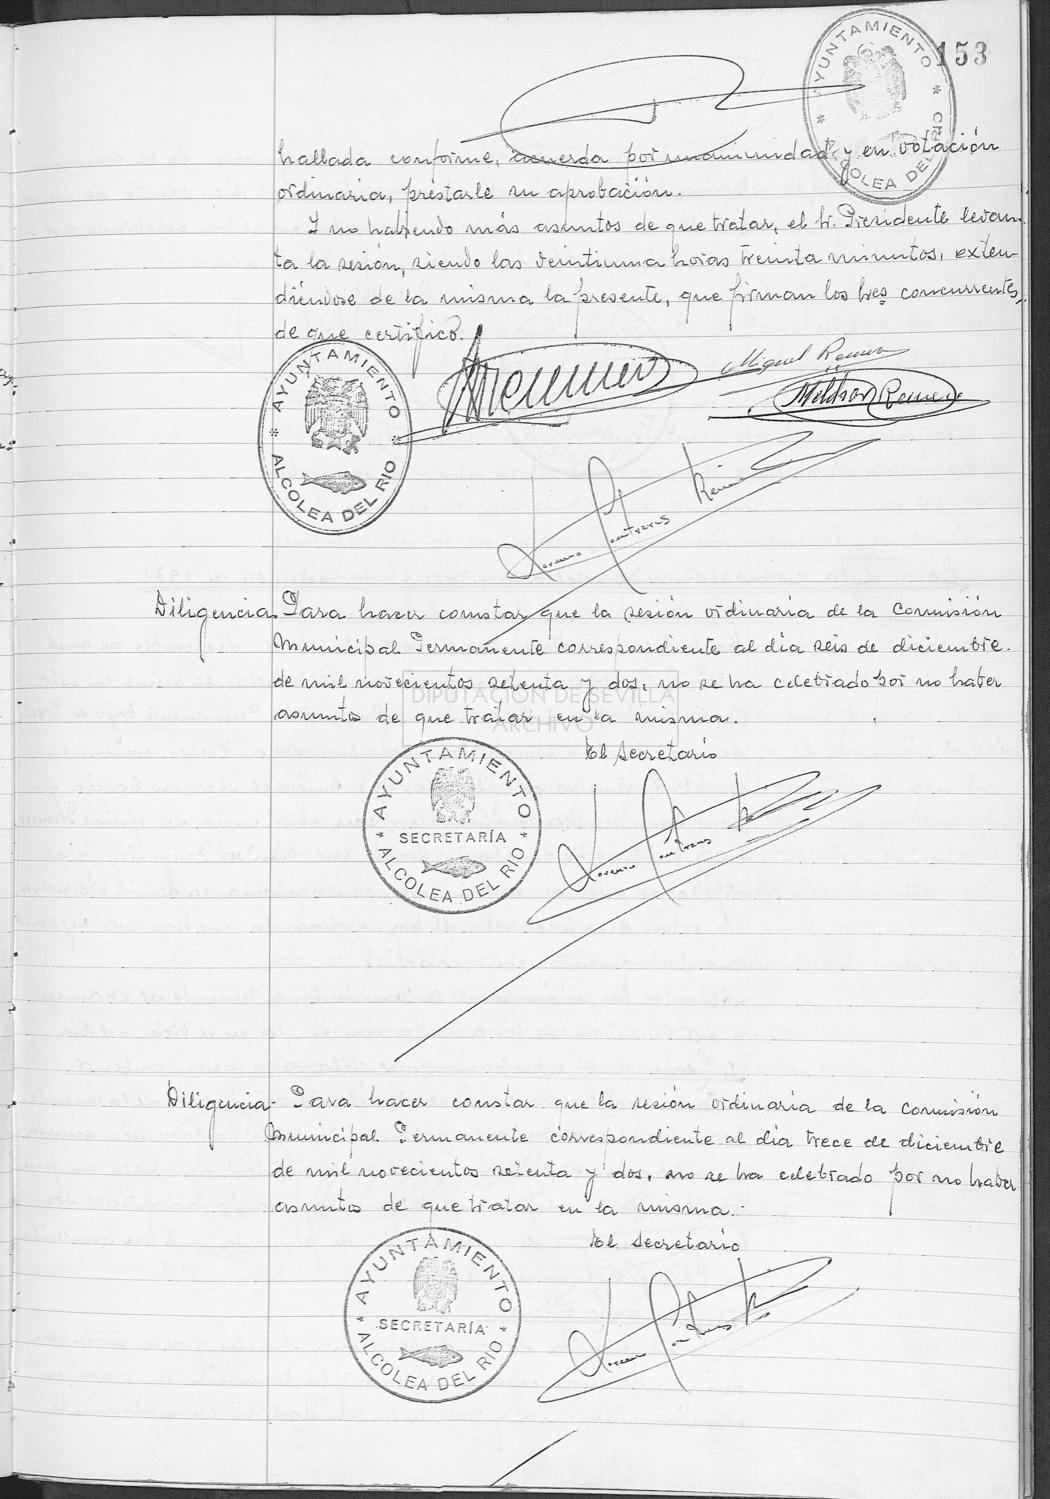 153
* AYUNTAMIENTO * ALCOLEA DEL RIO
hallada conforme, acuerda por unanimidad y en votación
ordinaria, prestarle su aprobación.
Y no habiendo más asuntos de que tratar, el Sr. Presidente levan-
ta la sesión, siendo las veintiuna horas treinta minutos, exten-
diéndose de la misma la presente, que firman los Sres concurrentes,
de que certifico.
* AYUNTAMIENTO * ALCOLEA DEL RIO
Miguel Romero
Diligencia. Para hacer constar que la sesión ordinaria de la Comisión
Municipal Permanente correspondiente al día seis de diciembre
de mil novecientos setenta y dos, no se ha celebrado por no haber
asuntos de que tratar en la misma.
DIPUTACIÓN DE SEVILLA
ARCHIVO
El Secretario
* AYUNTAMIENTO * ALCOLEA DEL RIO
SECRETARÍA
Diligencia- Para hacer constar que la sesión ordinaria de la Comisión
Municipal Permanente correspondiente al día trece de diciembre
de mil novecientos setenta y dos, no se ha celebrado por no haber
asuntos de que tratar en la misma.-
El Secretario
* AYUNTAMIENTO * ALCOLEA DEL RIO
SECRETARÍA